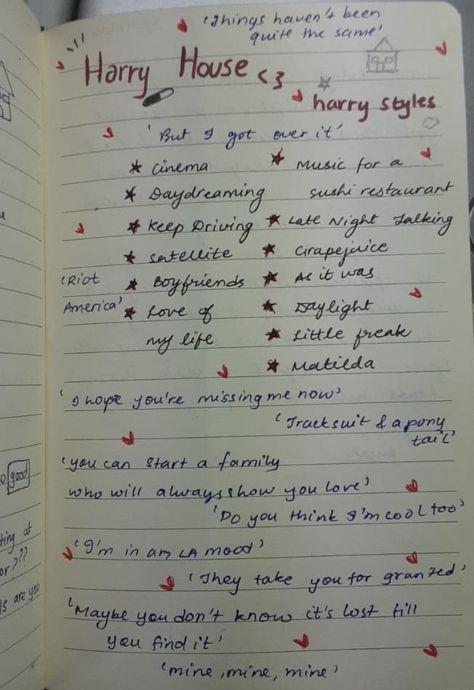 'Things haven't been
quite the same'
Harry House <3
harry styles
'But I got over it'
Cinema
Daydreaming
Keep Driving
Satellite
Boyfriends
Love of
my life
Music for a
sushi restaurant
Late Night Talking
Grapejuice
As it was
Daylight
Little freak
Matilda
'Riot
America'
'I hope you're missing me now'
'Tracksuit & a pony
tail'
'you can start a family
who will always show you love'
'Do you think I'm cool too'
'I'm in an LA mood'
'They take you for granted'
'Maybe you don't know it's lost till
you find it'
'mine, mine, mine'
good
ting at
or ???
s are you